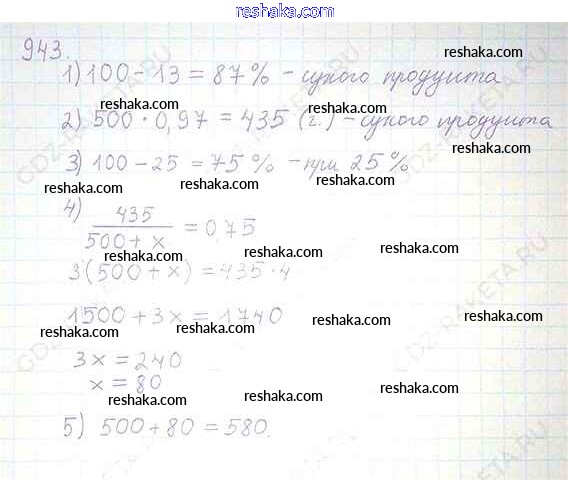 reshaka.com
943.
1) 100 - 13 = 87% - сухого продукта
reshaka.com
reshaka.com
2) 500 · 0,97 = 435 (г.) - сухого продукта
reshaka.com
reshaka.com
3) 100 - 25 = 75% - при 25%
reshaka.com
reshaka.com
reshaka.com
4) 435 / 500 + x = 0,75
reshaka.com
reshaka.com
3(500 + x) = 435 · 4
1500 + 3x = 1740
reshaka.com
reshaka.com
reshaka.com
3x = 240
x = 80
reshaka.com
reshaka.com
reshaka.com
5) 500 + 80 = 580.
reshaka.com
reshaka.com
reshaka.com
GDZ-RAKETA.RU